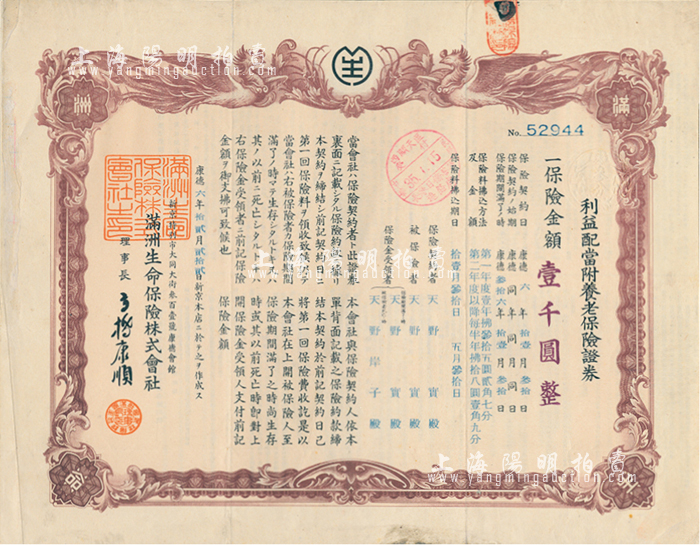 上海陽明拍賣
www.yangmingauction.com
滿
洲
No. 52944
利益配當附養老保險證券
一保險金額 壹千圓整
保險契約日 康德六年拾壹月參拾日
保險契約ノ始期 康德同年同月同日
保險期間滿了ノ時 康德參拾六年拾壹月參拾日
保險料拂込方法及金額
第一年度壹年拂參拾五圓貳角七分
第二年度以降每半年拂拾八圓壹角九分
保險料拂込期日 拾壹月參拾日 五月參拾日
保險契約者 天野實殿
被保險者 天野實殿
保險金受領者 天野岸子殿
當會社ハ保險契約者ト此證券
裏面ニ記載シタル保險約款ニ依リ
本契約ヲ締結シ前記契約日ニ
第一回保險料ヲ領收致候依テ
當會社ハ右被保險者カ保險期間
滿了ノ時マテ生存シタルトキ又ハ
其ノ以前ニ死亡シタルトキハ
右保險金受領者ニ前記保險
金額ヲ御支拂可致候也
本會社與保險契約人依本
單背面記載之保險約款締
結本契約於前記契約日已
將第一回保險費收訖是以
本會社在上開被保險人至
保險期間滿了之時尚生存
時或其以前死亡時卽對上
開保險金受領人支付前記
保險金額
康德六年拾貳月貳拾貳日新京本店ニ於テ之ヲ作成ス
新京特別市大同大街參百壹號康德會館
滿洲生命保險株式會社
理事長
滿洲生命保險株式會社之印
上海陽明拍賣
www.yangmingauction.com